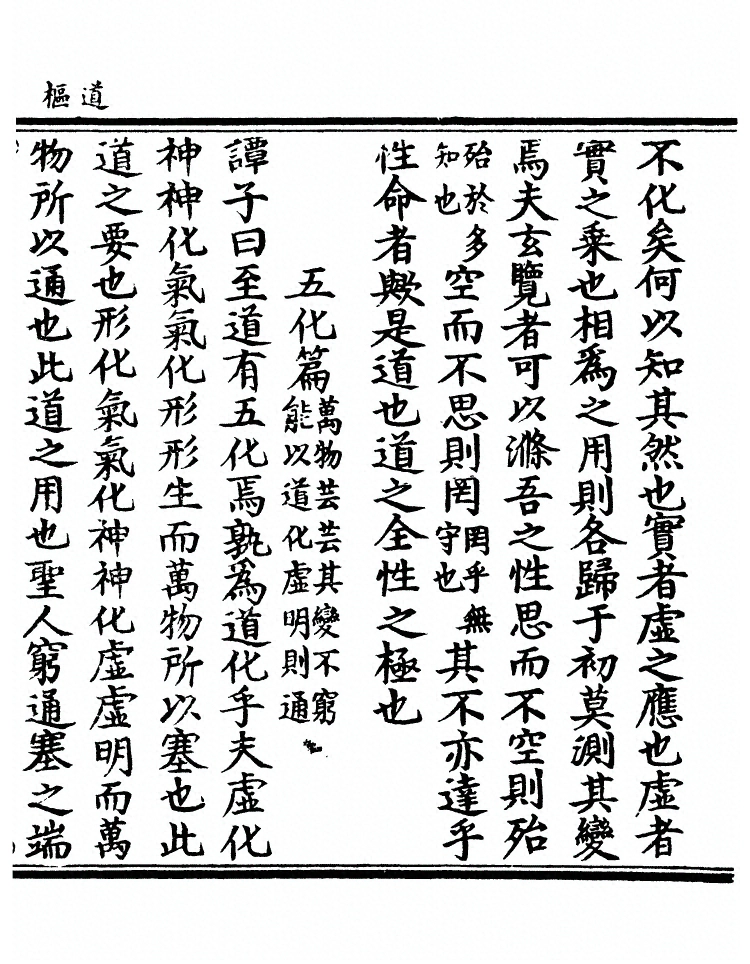 道樞
不化矣何以知其然也實者虛之應也虛者
實之乗也相爲之用則各歸于初莫測其變
焉夫玄覽者可以滌吾之性思而不空則殆
殆於多知也空而不思則罔罔乎無守也其不亦達乎
性命者歟是道也道之全性之極也
五化篇萬物芸芸其變不窮能以道化虛明則通
譚子曰至道有五化焉孰爲道化乎夫虛化
神神化氣氣化形形生而萬物所以塞也此
道之要也形化氣氣化神神化虛虛明而萬
物所以通也此道之用也聖人窮通塞之端